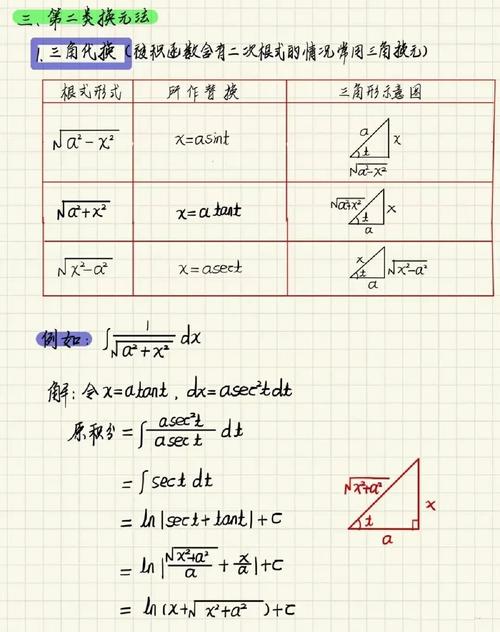 三、第二类换元法
1. 三角代换 (被积函数含有二次根式的情况常用三角换元)
根式形式 所作替换 三角形示意图
√(a²-x²) x=asint a x t √(a²-x²)
√(a²+x²) x=atant √(a²+x²) x t a
√(x²-a²) x=asect x t √(x²-a²) a
例如: ∫1/√(a²+x²) dx
解: 令x=atant, dx=asec²tdt
原积分=∫asec²t/asect dt
=∫sect dt
=ln|sect+tant|+C
=ln|√(x²+a²)/a+x/a|+C
=ln(x+√(x²+a²))+C
√(x²+a²) x t a